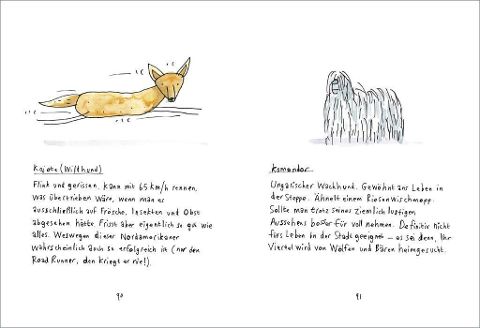 Kojote (Wildhund)
Flink und gerissen. Kann mit 65 km/h rennen.
Was übertrieben wäre, wenn man es
ausschließlich auf Frösche, Insekten und Obst
abgesehen hätte. Frisst aber eigentlich so gut wie
alles. Weswegen dieser Nordamerikaner
wahrscheinlich auch so erfolgreich ist (nur den
Road Runner, den kriegt er nie!).
90
Komondor
Ungarischer Wachhund. Gewöhnt ans Leben in
der Steppe. Ähnelt einem Riesenwischmopp.
Sollte man trotz seines ziemlich lustigen
Aussehens besser für voll nehmen. Definitiv nicht
fürs Leben in der Stadt geeignet – es sei denn, Ihr
Viertel wird von Wölfen und Bären heimgesucht.
91